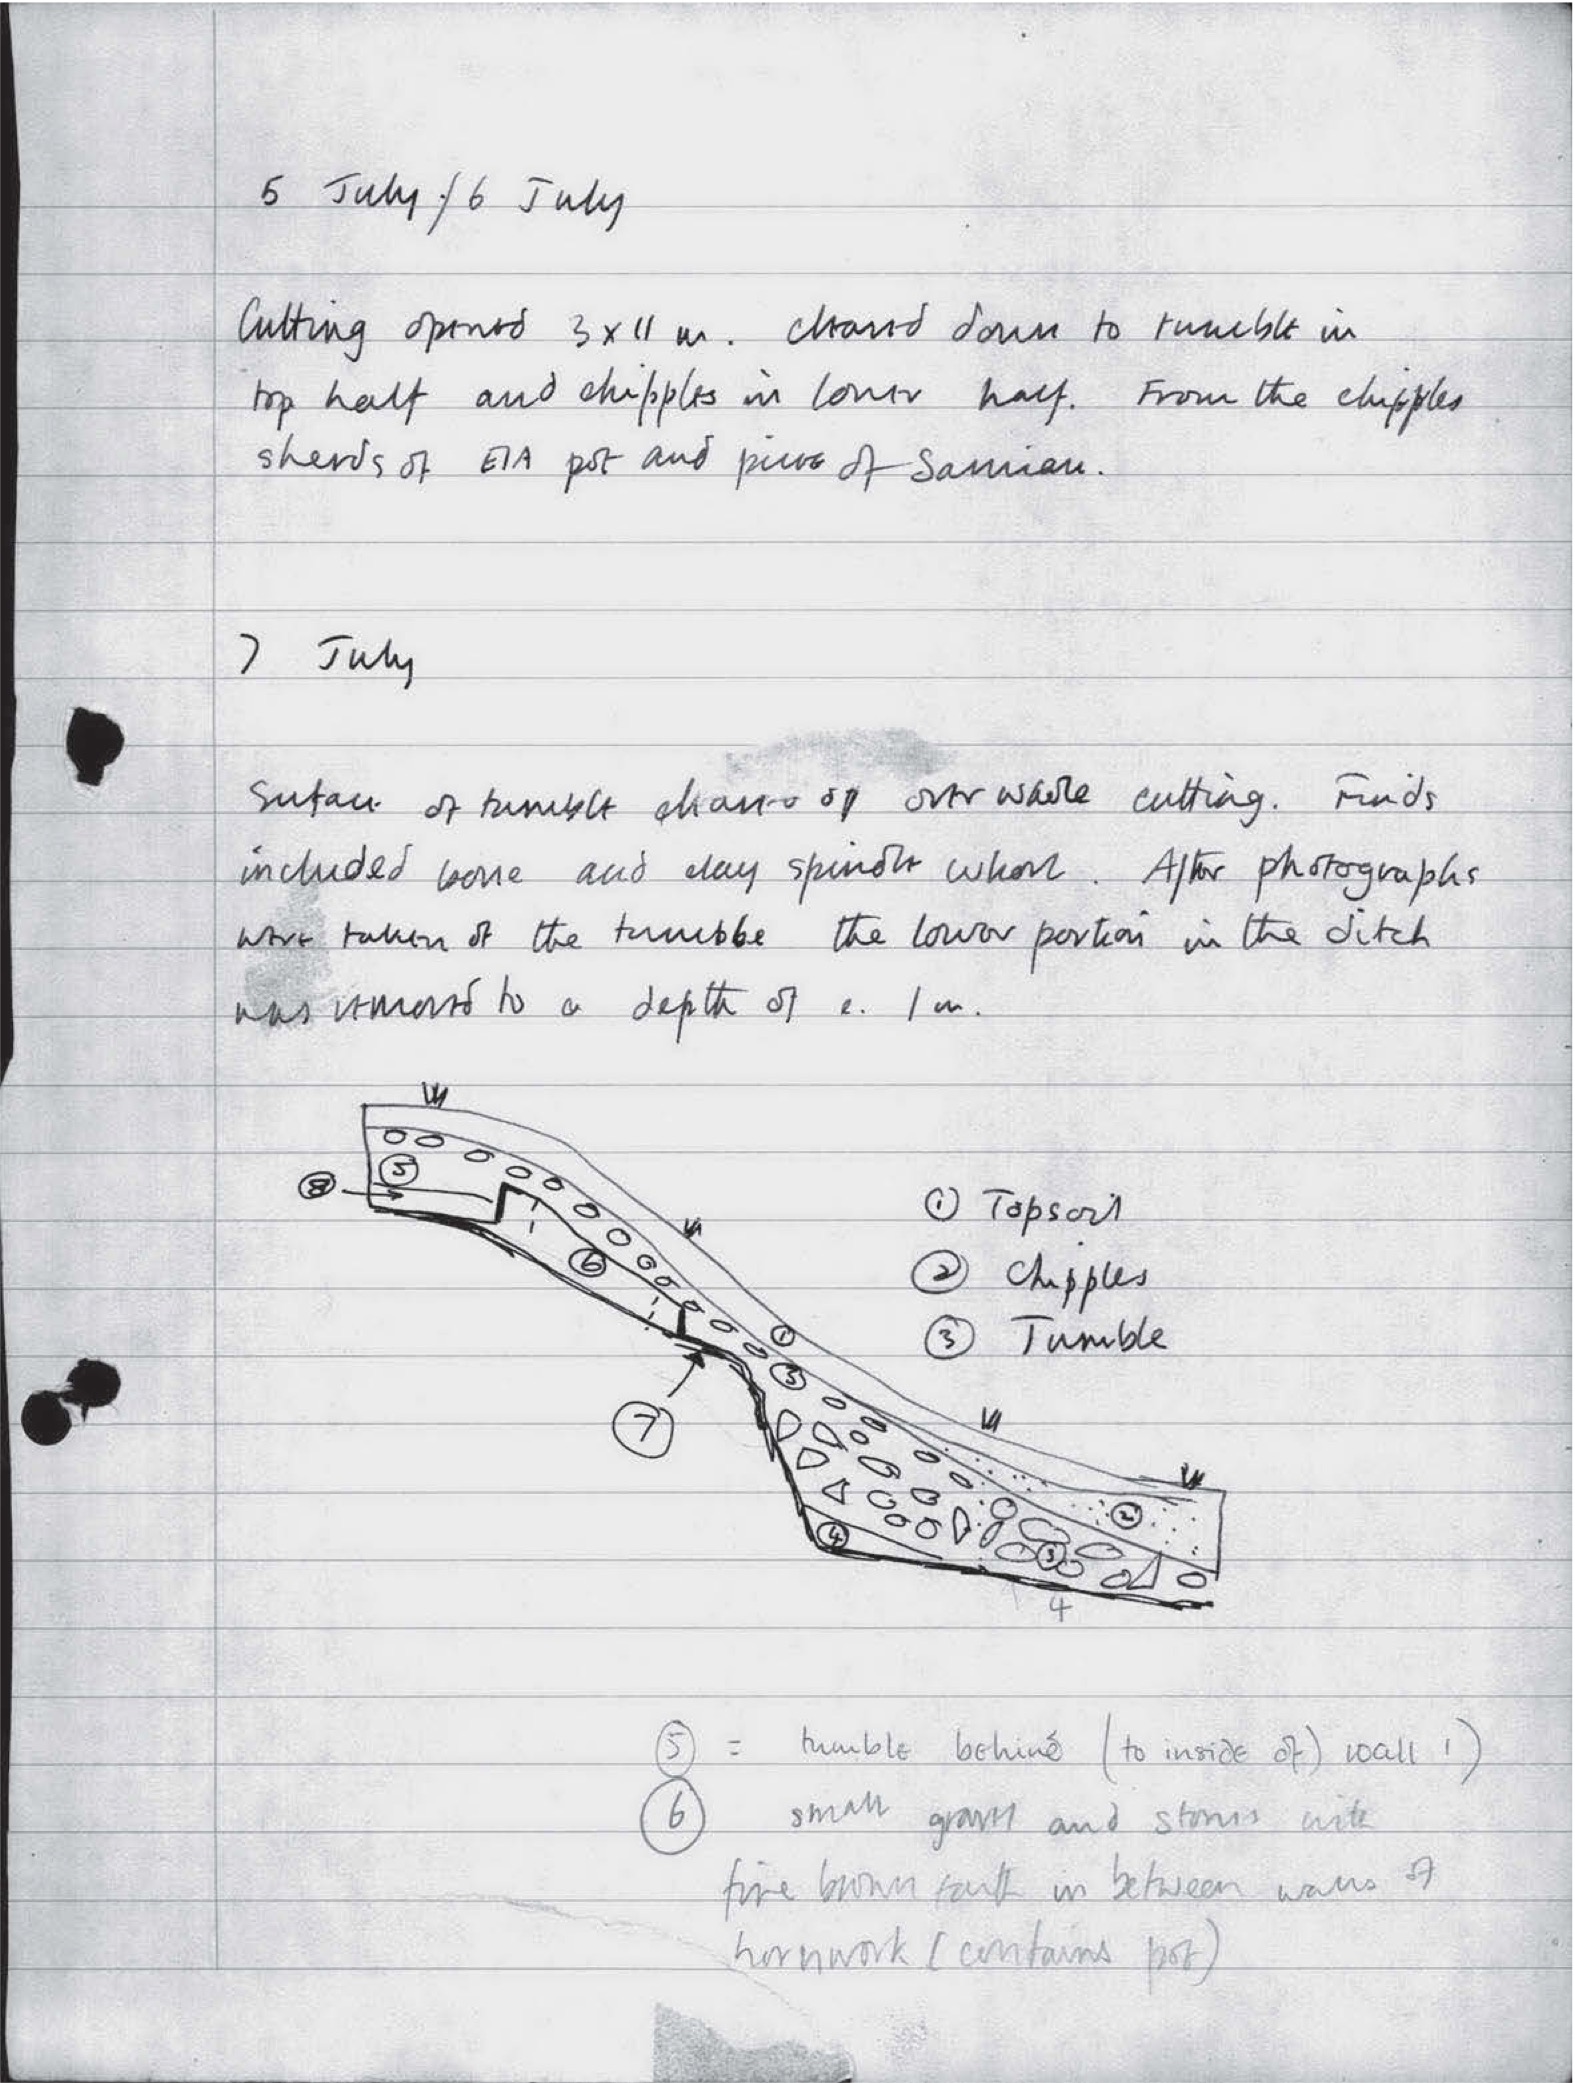 5 July / 6 July
Cutting opened 3 x 11 m. Cleaned down to tumble in
top half and chipples in lower half. From the chipples
sherds of EIA pot and piece of Samian.
7 July
Surface of tumble cleaned up over whole cutting. Finds
included bone and clay spindle whorl. After photographs
were taken of the tumble the lower portion in the ditch
was removed to a depth of c. 1 m.
5
8
6
1
3
7
2
4
3
4
① Topsoil
② Chipples
③ Tumble
⑤ = tumble behind (to inside of) wall 1)
⑥ small gravel and stones with
fine brown earth in between walls of
hornwork (contains pot)